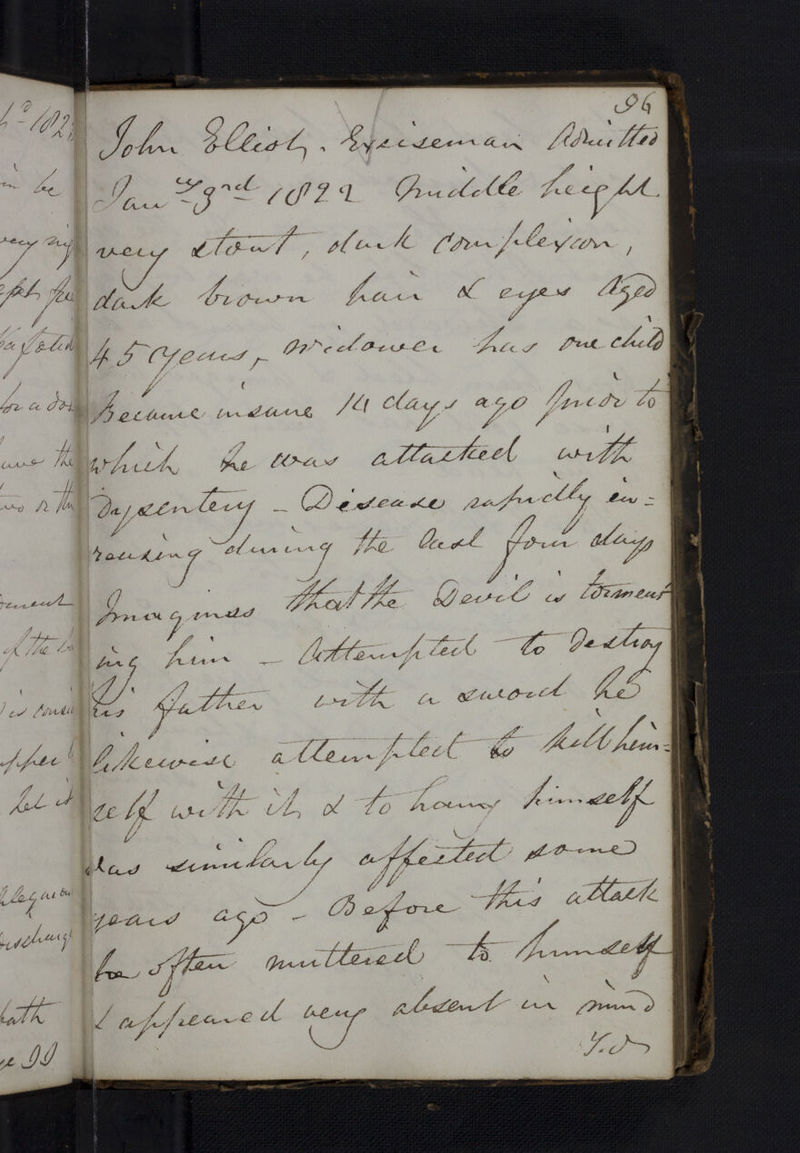 96
John Elliot, Exiseman Admitted
Jany 3rd 1822 Middle height
very stout, dark complexion,
dark brown hair & eyes Aged
45 years, Widower has one child
Became insane 14 days ago prior to
which he was attacked with
Dysentery - Disease rapidly in=
creasing during the last four days
Imagines that the Devil is torment
ing him - Attempted to destroy
his father with a sword he
likewise attempted to kill him=
self with it, & to hang himself
Was similarly affected some
years ago - Before this attack
he often muttered to himself
& appeared very absent in mind